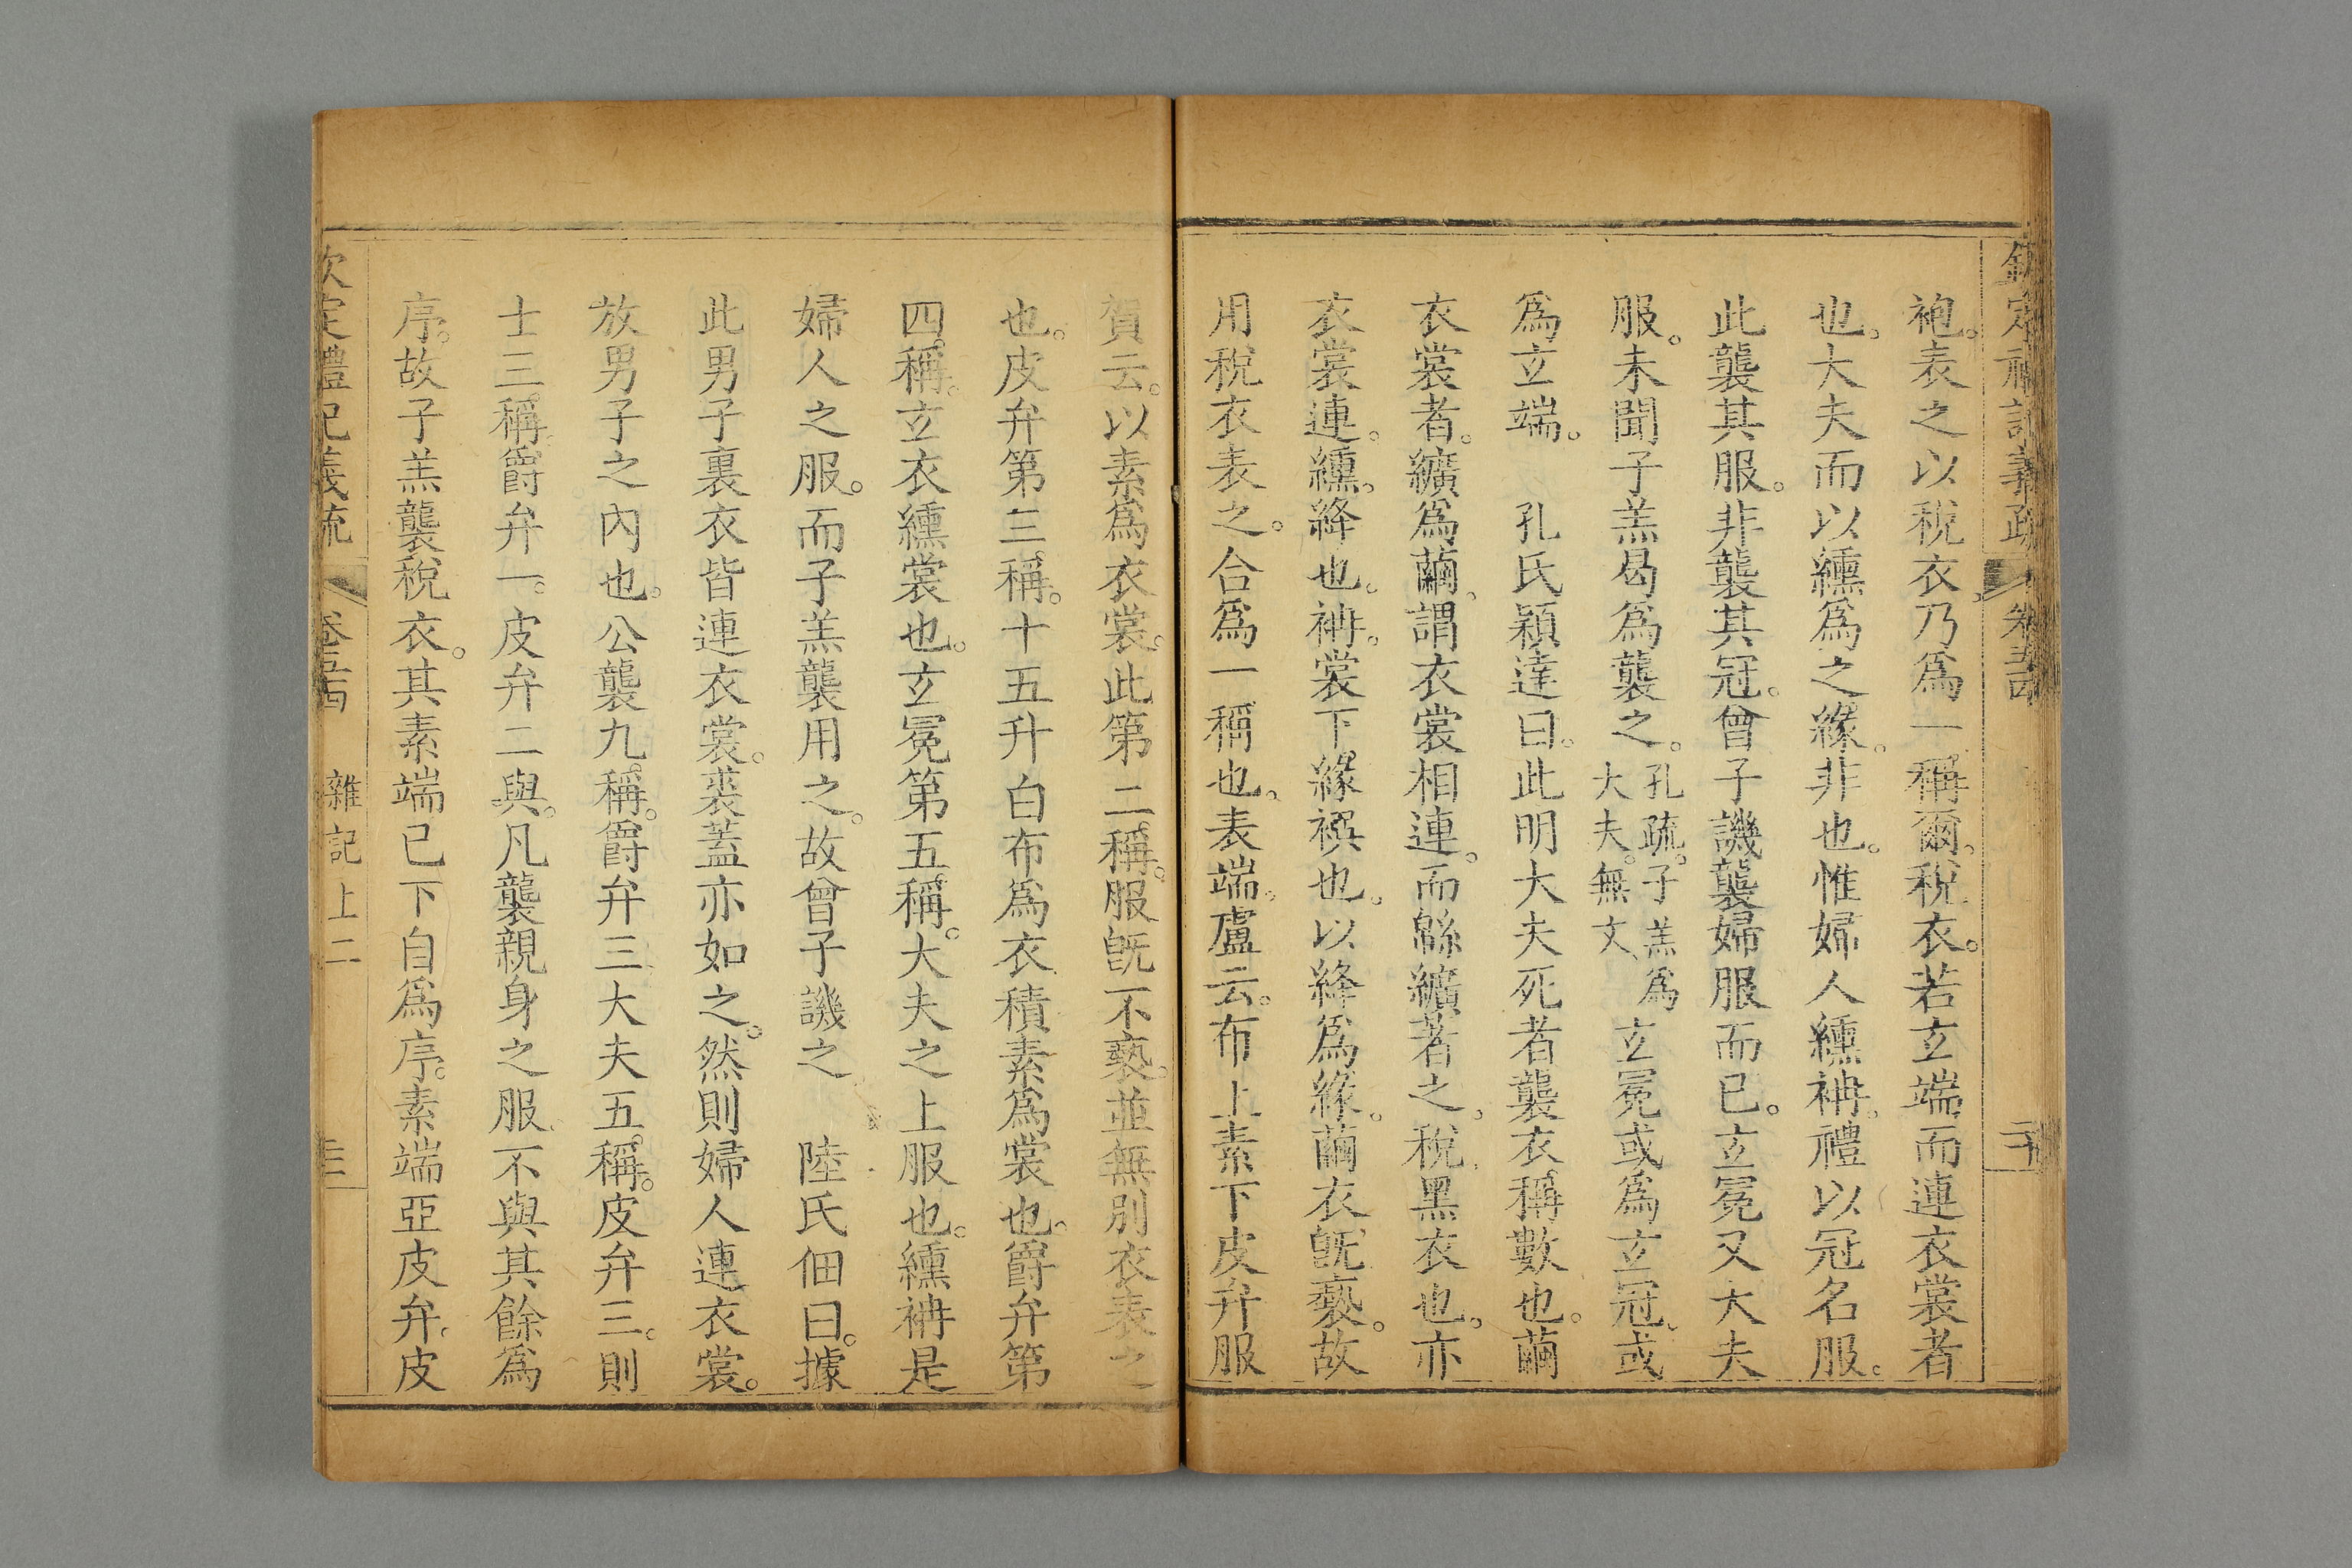 欽定禮記義疏 卷五十四 三十
袍。表之以稅衣。乃爲一稱爾。稅衣。若玄端而連衣裳者
也。大夫而以纁爲之緣。非也。惟婦人纁袡。禮以冠名服。
此襲其服。非襲其冠。曾子譏襲婦服而已。玄冕又大夫
服。未聞子羔曷爲襲之。孔疏。子羔爲大夫。無文、玄冕或爲玄冠、或
爲玄端。　孔氏穎達曰。此明大夫死者襲衣稱數也。繭
衣裳者。纊爲繭。謂衣裳相連。而緜纊著之。稅。黑衣也。亦
衣裳連。纁。絳也。袡。裳下緣襈也。以絳爲緣。繭衣旣褻。故
用稅衣表之。合爲一稱也。表端。盧云。布上素下皮弁服
賀云。以素爲衣裳。此第二稱。服旣不褻。並無別衣表之
也。皮弁第三稱。十五升白布爲衣積素爲裳也。爵弁第
四稱。玄衣纁裳也。玄冕第五稱。大夫之上服也。纁袡是
婦人之服。而子羔襲用之。故曾子譏之　陸氏佃曰。據
此男子裏衣皆連衣裳。裘蓋亦如之。然則婦人連衣裳。
放男子之內也。公襲九稱。爵弁三大夫五稱。皮弁三。則
士三稱。爵弁一。皮弁二與。凡襲親身之服。不與其餘爲
序。故子羔襲稅衣。其素端已下自爲序。素端亞皮弁。皮
欽定禮記義疏 卷五十四 雜記上二